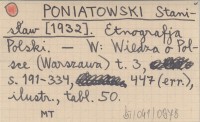 PONIATOWSKI Stani-
sław [1932]. Etnografja
Polski. — W: Wiedza o Pol-
sce (Warszawa) t. 3,
s. 191-334, 447 (err.),
ilustr., tabl. 50.
MT